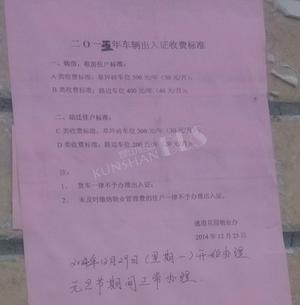 二〇一五年车辆出入证收费标准
一、购房、租房住户标准：
A 类收费标准：草坪砖车位 500 元/年（50 元/月）。
B 类收费标准：路边车位 400 元/年（40 元/月）。
二、动迁住户标准：
C 类收费标准，草坪砖车位 300 元/年（30 元/月）。
D 类收费标准：路边车位 200 元/年（20 元/月）。
KUNSHAN
注：
1、 货车一律不予办理出入证。
2、 未及时缴纳物业管理费的住户一律不予办理出入证。
通澄花园物业办
2014 年 12 月 25 日
2014年12月29日（星期一）开始办理
元旦节期间正常办理。